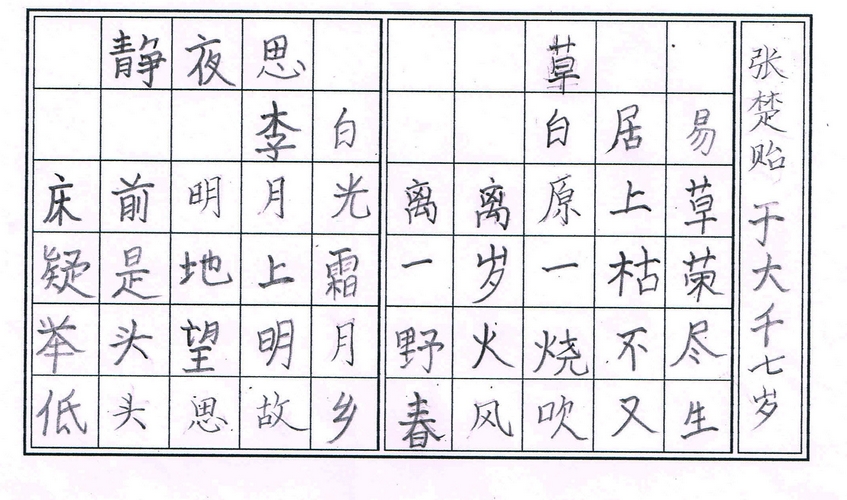 静夜思
李白
床前明月光
疑是地上霜
举头望明月
低头思故乡
草
白居易
离离原上草
一岁一枯荣
野火烧不尽
春风吹又生
张楚贻 于大千七岁